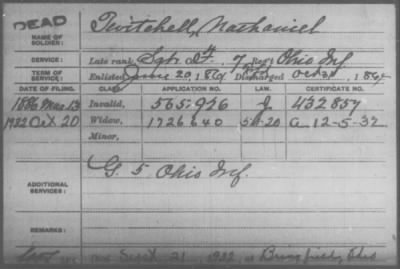 DEAD
NAME OF SOLDIER: Twitchell, Nathaniel
SERVICE: Late rank, Sgt. Co. F, 7 Reg't Ohio Inf.
TERM OF SERVICE: Enlisted June 20, 1861 Discharged 1864
DATE OF FILING. CLASS. APPLICATION NO. LAW. CERTIFICATE NO.
1886 Mar. 13 Invalid, 565.956 432857
1922 Oct 20 Widow, 1726640 5-1-20 a 12-5-32
Minor,
ADDITIONAL SERVICES: G. 5 Ohio Inf.
REMARKS:
Died Sept. 21, 1922, at